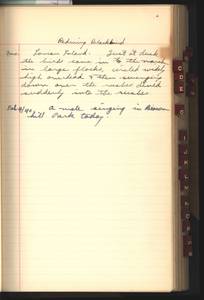 Redwing Blackbird
Louise Island. Just at dusk
the birds came in to the marsh
in large flocks, circled widely
high overhead & then swinging
down over the rushes dived
suddenly into the rushes.
a male singing in
hill Park today.